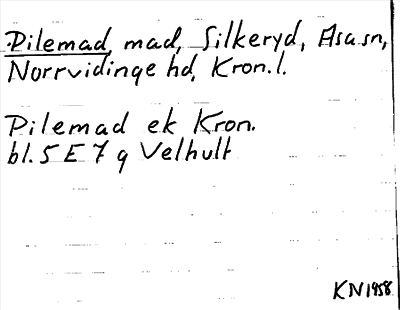 Pilemad, mad, Silkeryd, Asa sn,
Norrvidinge hd, Kron. l.
Pilemad ek Kron.
bl. 5 E 7 g Velhult
KN 1958